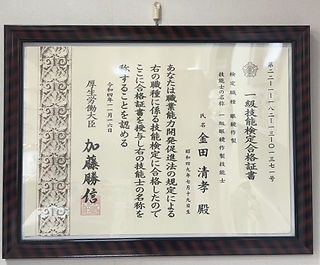 第二二-一-一八二-一三-〇一三七一号
一級技能検定合格証書
検定職種 眼鏡作製
技能士の名称 一級眼鏡作製技能士
氏名 金田 清孝 殿
昭和四九年七月十九日生
あなたは職業能力開発促進法の規定による
右の職種に係る技能検定に合格したので
ここに合格証書を授与し右の技能士の名称を
称することを認める
令和四年一一月一一日
厚生労働大臣 加藤勝信